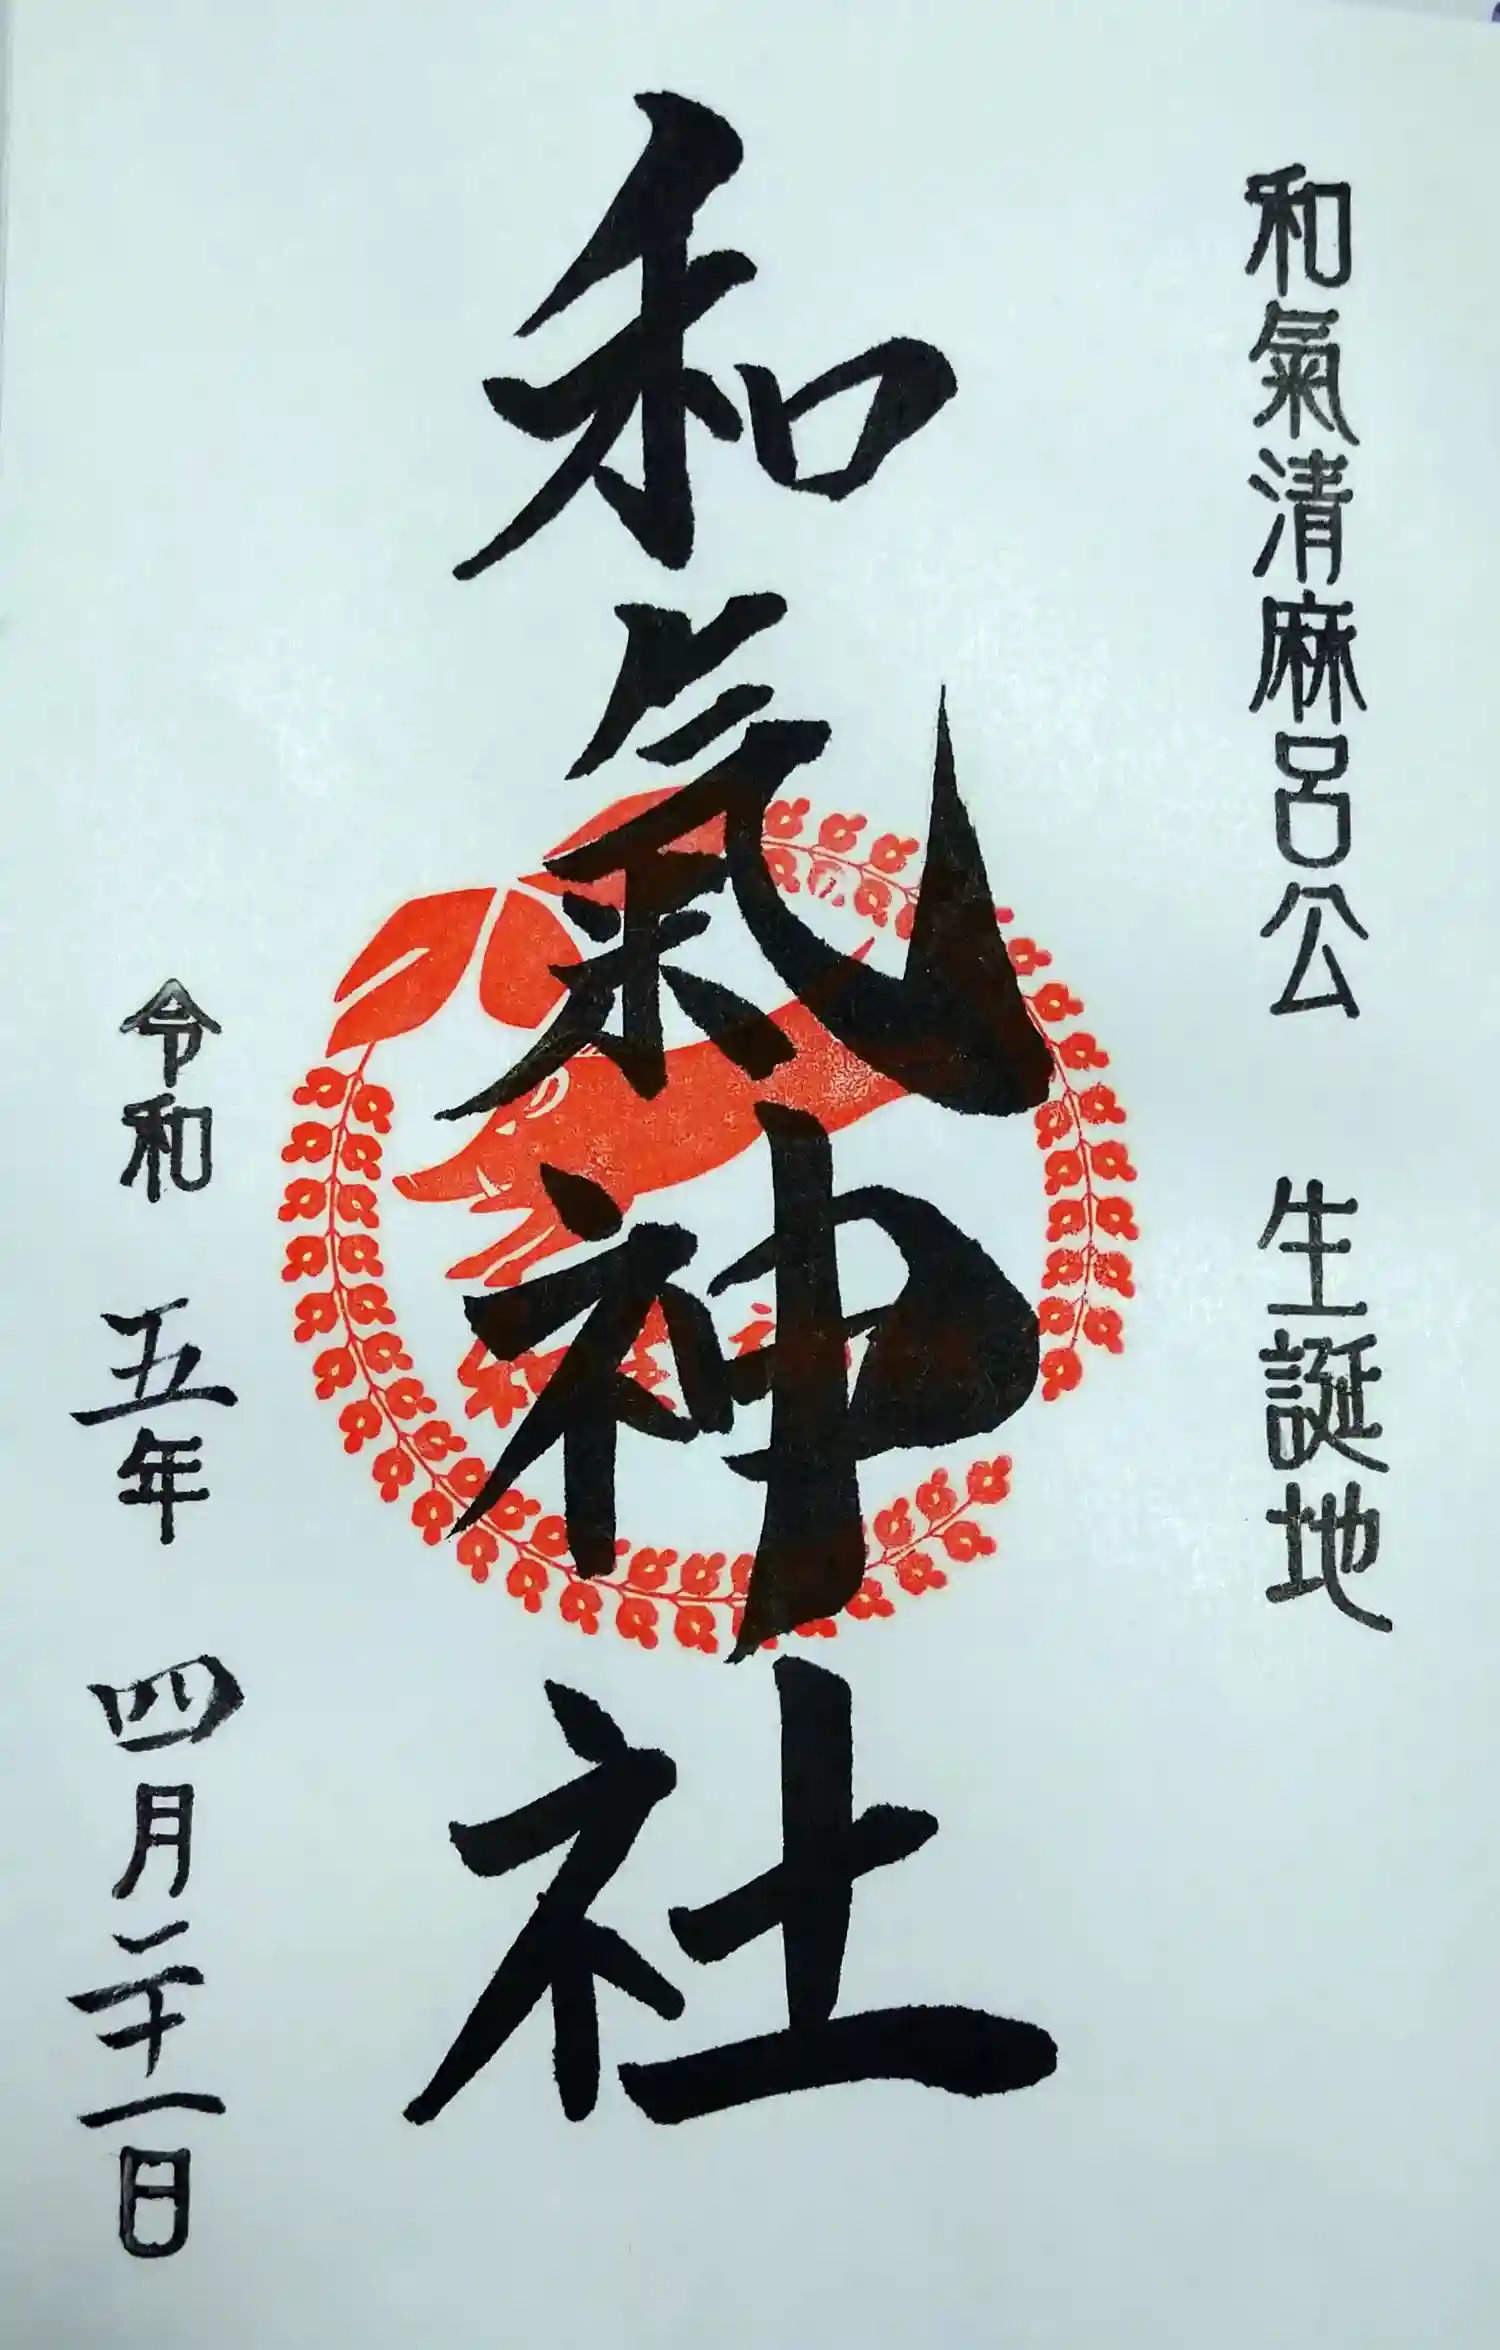 和氣清麻呂公 生誕地
和氣神社
令和 五年 四月二十一日